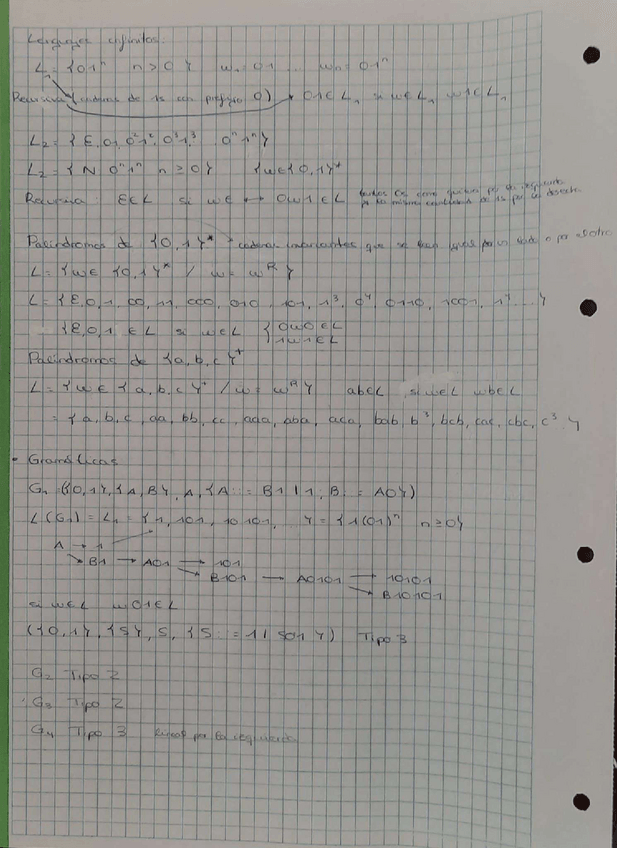 Lenguajes infinitos:
L₁ = {01ⁿ n > 0} w₁ = 01 ... wₙ = 01ⁿ
Recursiva (cadenas de 1s con prefijo 0) 01 ∈ L₁ si w ∈ L₁ w1 ∈ L₁
L₂ = {ε, 01, 0²1², 0³1³, 0ⁿ1ⁿ}
L₂ = {N 0ⁿ1ⁿ n ≥ 0} {w ∈ {0,1}*
Recursiva: ε ∈ L si w ∈ ↔ 0w1 ∈ L tantos 0s como quieras por la izquierda
la misma cantidad de 1s por la derecha
Palíndromos de {0,1}* > cadenas invariantes que se leen igual por un lado o por el otro
L = {w ∈ {0,1}* / w = wᴿ}
L = {ε, 0, 1, 00, 11, 000, 010, 101, 1³, 0⁴, 0110, 1001, 1⁴...}
{ε, 0, 1} ∈ L si w ∈ L { 0w0 ∈ L
1w1 ∈ L
Palíndromos de {a, b, c}⁺
L = {w ∈ {a, b, c}⁺ / w = wᴿ} ab∈L si w∈L wb∈L
= {a, b, c, aa, bb, cc, aaa, aba, aca, bab, b³, bcb, cac, cbc, c³}
• Gramáticas
G₁ = ({0,1}, {A, B}, A, {A ::= B1 | 1, B ::= A0})
L(G₁) = L₁ = {1, 101, 10101, } = {1(01)ⁿ n ≥ 0}
A → 1
↘ B1 → A01 → 101
↘ B101 → A0101 → 10101
↘ B10101
si w∈L w01∈L
({0,1}, {S}, S, {S ::= 1 | S01}) Tipo 3
G₂ Tipo 2
G₃ Tipo 2
G₄ Tipo 3 Lineal por la izquierda